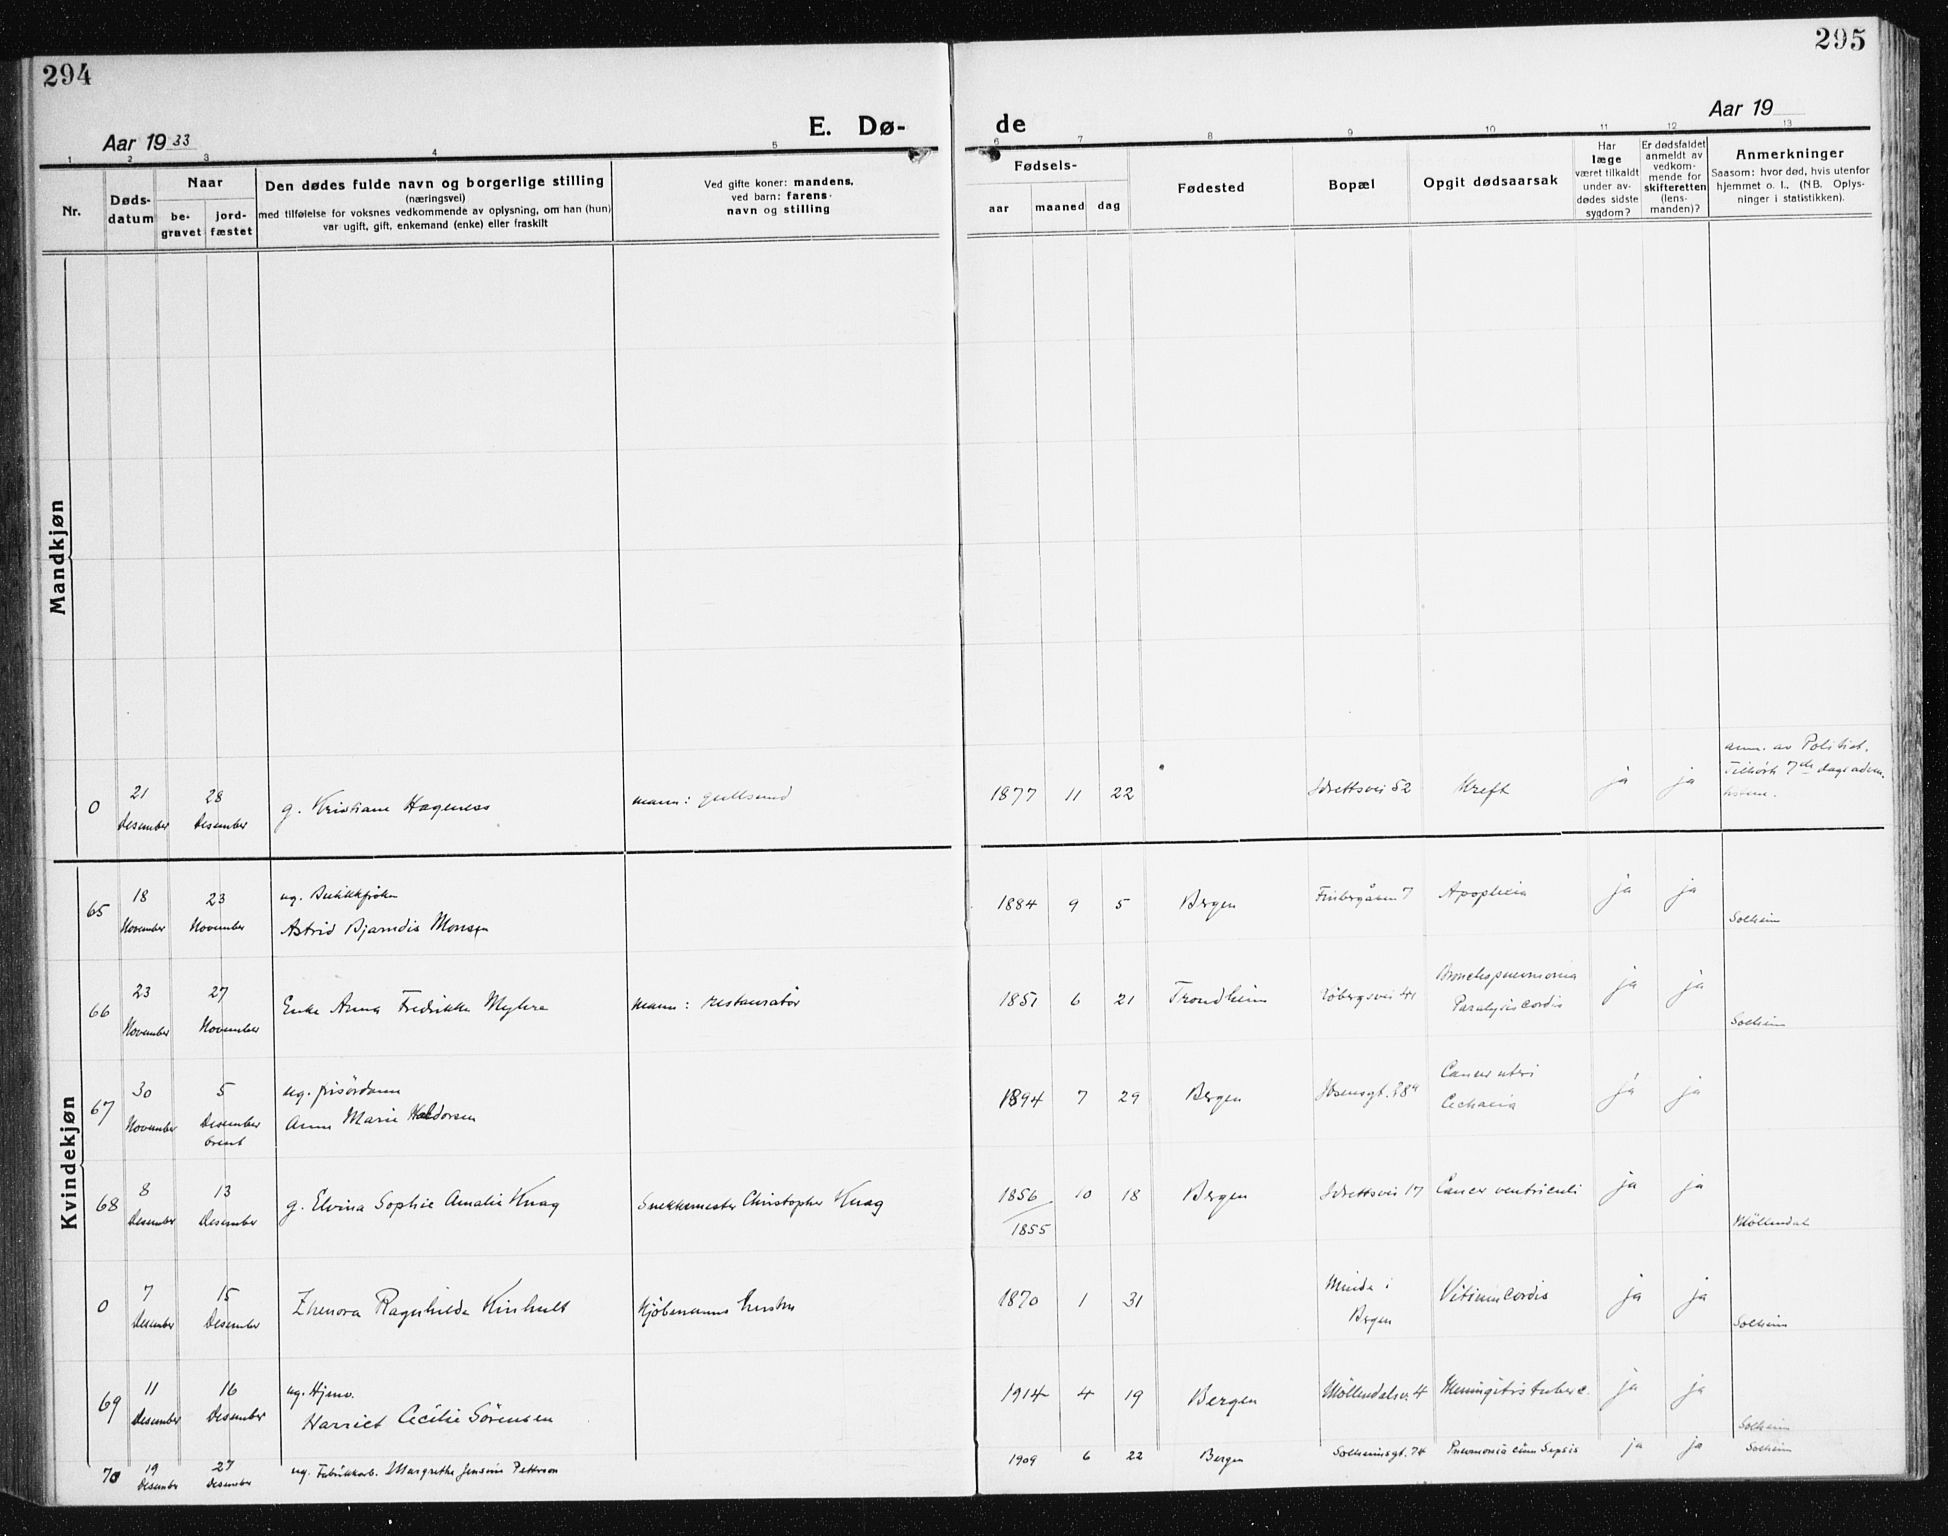 294
295
Aar 1933
E. Dø-
de
Aar 19
1 2 3 4 5 6 7 8 9 10 11 12 13
Nr.
Døds-
datum
Naar
be-
gravet
jord-
fæstet
Den dødes fulde navn og borgerlige stilling
(næringsvei)
med tilføielse for voksnes vedkommende av oplysning, om han (hun)
var ugift, gift, enkemand (enke) eller fraskilt
Ved gifte koner: mandens,
ved barn: farens
navn og stilling
Fødsels-
aar maaned dag
Fødested
Bopæl
Opgit dødsaarsak
Har
læge
været tilkaldt
under av-
dødes sidste
sygdom?
Er dødsfaldet
anmeldt av
vedkom-
mende for
skifteretten
(lens-
manden)?
Anmerkninger
Saasom: hvor død, hvis utenfor
hjemmet o. l., (NB. Oplys-
ninger i statistikken).
Mandkjøn
anm. av Politiet.
Tilhørh 7de dags adven.
0 21 28 g. Kristiane Hageness mann: Gullsmed 1877 11 22 Idrettsvei 52 Kreft ja ja
Desember Desember
Kvindekjøn
65 18 23 ug. Butikkfrøken 1884 9 5 Bergen 7 Apoplexia ja ja
November November Astrid Bjarndis Monsen Solheim
66 23 27 Enke Anna Fredrikke Myhre mann: restauratør 1851 6 21 Trondheim 41 Bronchopneumonia ja ja
November November Paralysis cordis Solheim
67 30 5 ug. frisördame 1894 7 29 Bergen Ibsensgt. Cancer uteri ja ja
November Desember Anna Marie Haldorsen
brent
68 8 13 g. Elvina Sophie Amalie Knag Snekkermester Christopher Knag 1856 10 18 Bergen Idrettsvei 17 Cancer ventriculi ja ja
Desember Desember 1855 Möllendal
0 7 15 Ragnhilda Kinhult Kjöbmanns hustru 1870 1 31 Minde i Vitium cordis ja ja
Desember Desember Bergen Solheim
69 11 16 ug. Hjemv. 1914 4 19 Bergen Möllendalsv. 4 Meningitis tuberc. ja ja
Desember Desember Harriet Cecilie Sörensen Solheim
70 19 27 ug. Fabrikkarb. Margrethe Jensine Petterson 1909 6 22 Bergen Solheimsgt. 74 Pneumonia cum Sepsis ja ja Solheim
Desember Desember